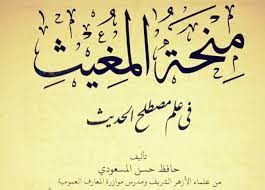 منحة المغيث
فى علم مصطلح الحديث
تأليف
حافظ حسن المسعودي
من علماء الأزهر الشريف ومدرس بوزارة المعارف العمومية